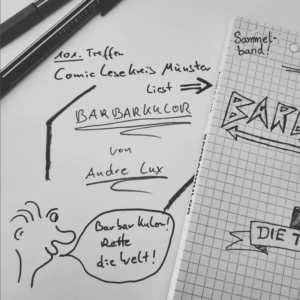 101. Treffen
Comic Lesekreis Münster
liest
BARBARKULOR
von
Andre Lux
Barbarkulor!
Rette
die Welt!
Sammel-
band!
BAR
DIE T